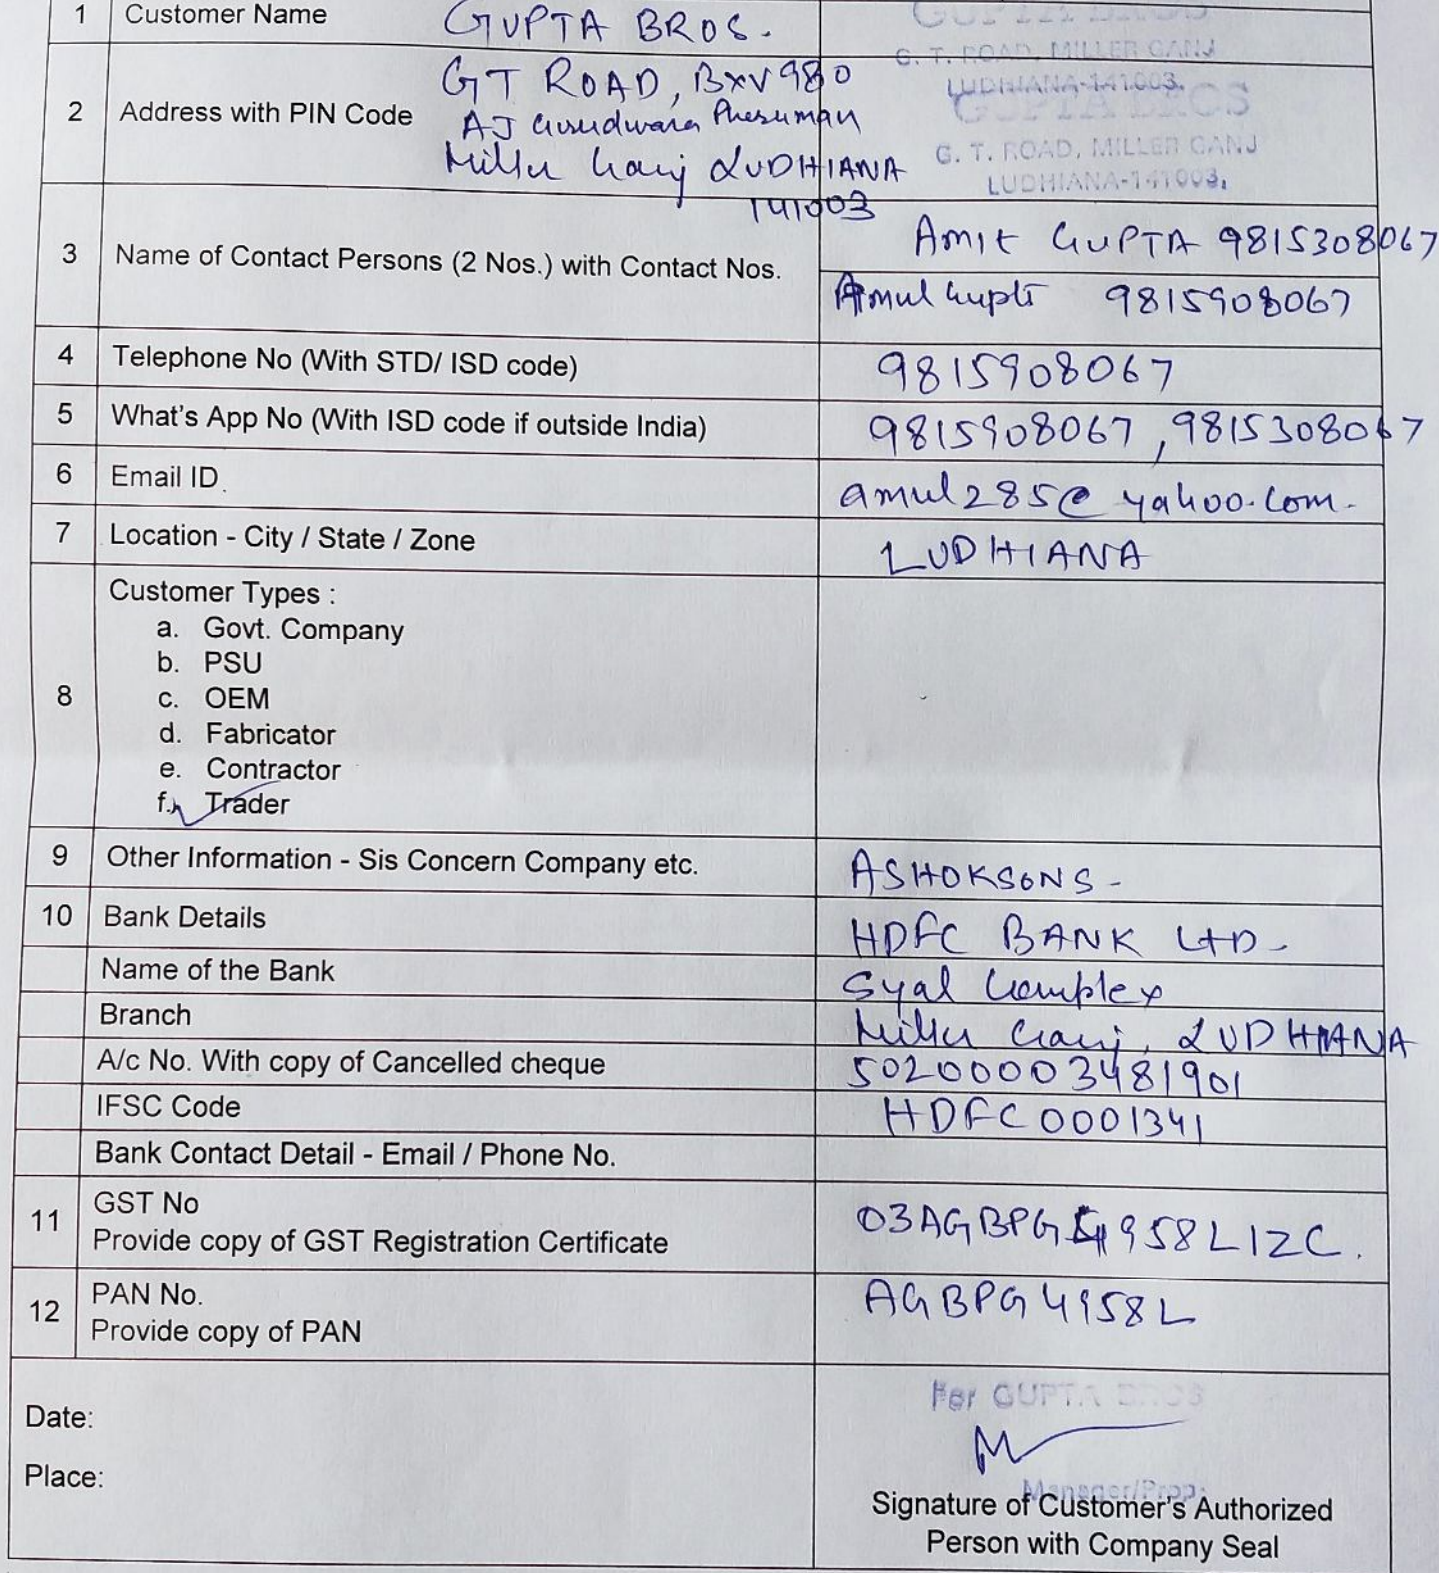 1 Customer Name GUPTA BROS.
GUPTA BROS
G. T. ROAD, MILLER GANJ
LUDHIANA-141003.
2 Address with PIN Code GT ROAD, BXV 980
AJ Gurudwara Pheruman
Miller Ganj LUDHIANA
141003
GUPTA BROS
G. T. ROAD, MILLER GANJ
LUDHIANA-141003.
3 Name of Contact Persons (2 Nos.) with Contact Nos.
Amit GUPTA 9815308067
Amul Gupta 9815908067
4 Telephone No (With STD/ ISD code) 9815908067
5 What's App No (With ISD code if outside India) 9815908067, 9815308067
6 Email ID amul285@yahoo.com.
7 Location - City / State / Zone LUDHIANA
8 Customer Types :
a. Govt. Company
b. PSU
c. OEM
d. Fabricator
e. Contractor
f. Trader
9 Other Information - Sis Concern Company etc. ASHOKSONS -
10 Bank Details HDFC BANK LTD -
Name of the Bank Syal Complex
Branch Miller Ganj, LUDHIANA
A/c No. With copy of Cancelled cheque 50200003481901
IFSC Code HDFC0001341
Bank Contact Detail - Email / Phone No.
11 GST No
Provide copy of GST Registration Certificate 03AGBPG4958L1ZC.
12 PAN No.
Provide copy of PAN AGBPG4958L
Date:
Place:
For GUPTA BROS
Manager/Prop.
Signature of Customer's Authorized
Person with Company Seal